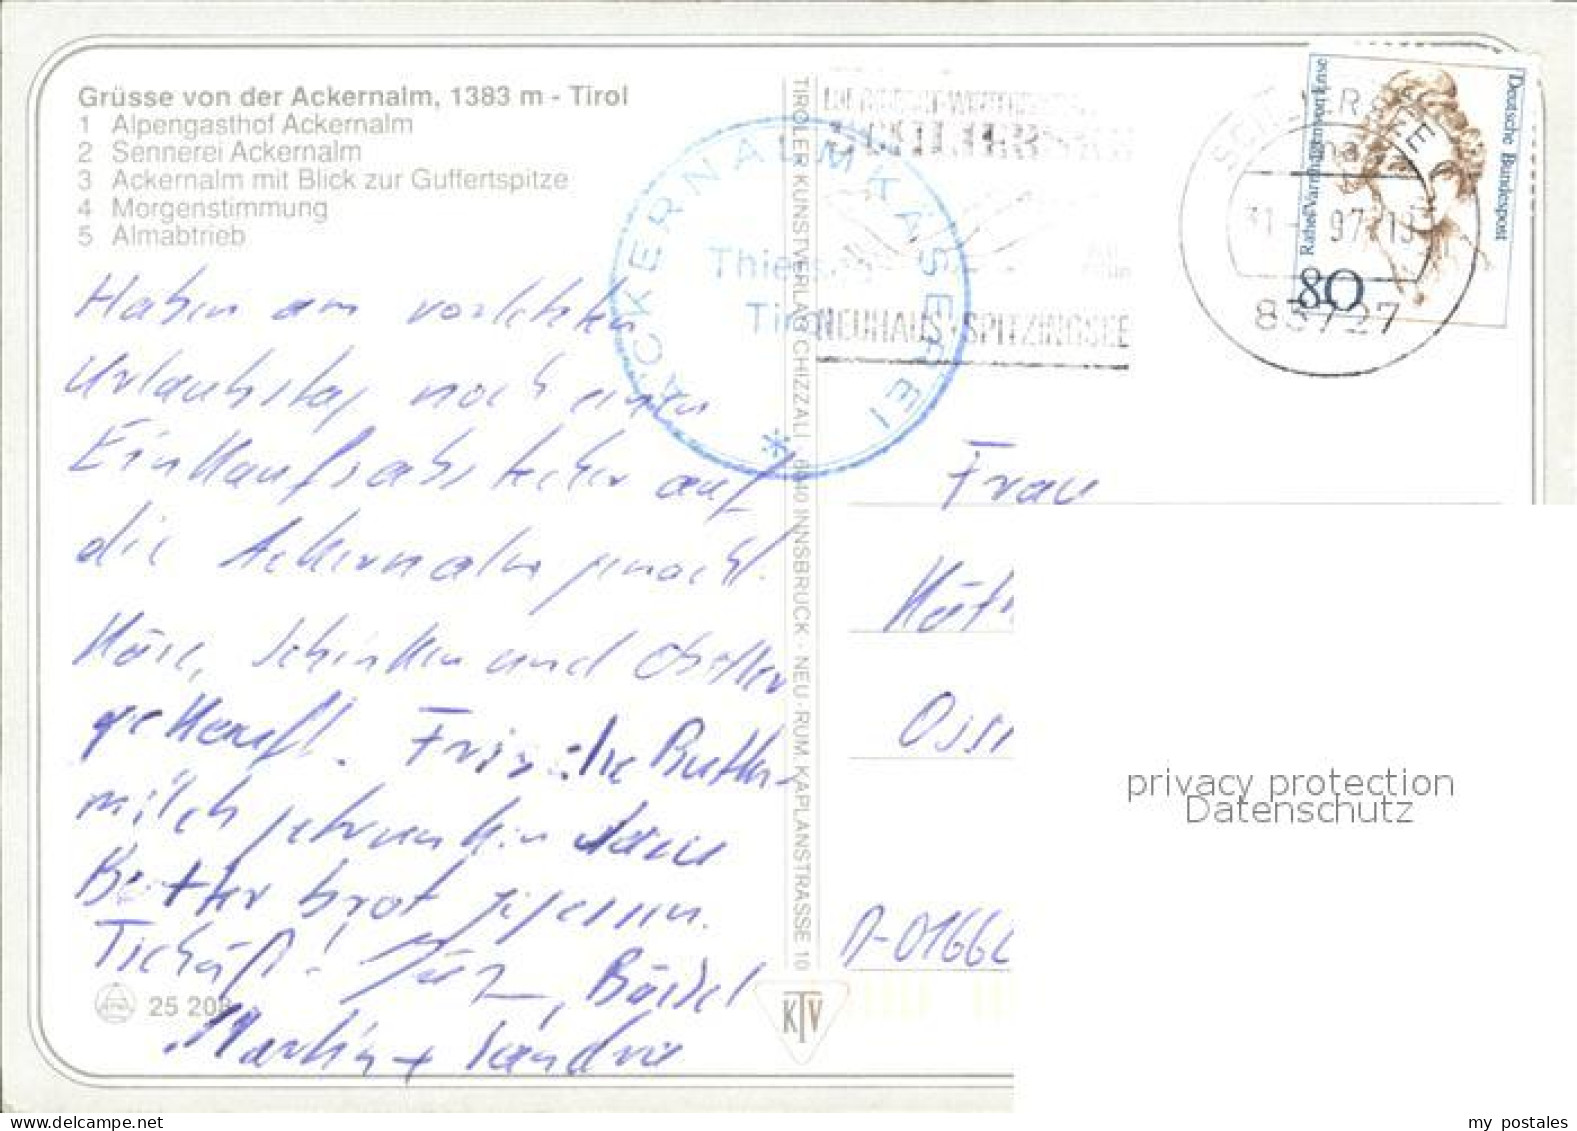 Grüsse von der Ackernalm, 1383 m - Tirol
1 Alpengasthof Ackernalm
2 Sennerei Ackernalm
3 Ackernalm mit Blick zur Guffertspitze
4 Morgenstimmung
5 Almabtrieb
Haben am vorletzten
Urlaubstag noch einen
Einkaufsabstecher auf
die Ackernalm gemacht.
Käse, Schinken und
gekauft. Frische Butter-
milch getrunken
Butterbrot gegessen.
Martin + Sandra
25 208
TIROLER KUNSTVERLAG CHIZZALI · 6040 INNSBRUCK · NEU-RUM, KAPLANSTRASSE 10
KTV
ACKERNALMKÄSEREI
*
NEUHAUS · SPITZINGSEE
97
83727
Deutsche Bundespost
Rahel Varnhagen von Ense
80
Frau
D-0166
privacy protection
Datenschutz
www.delcampe.net
my postales